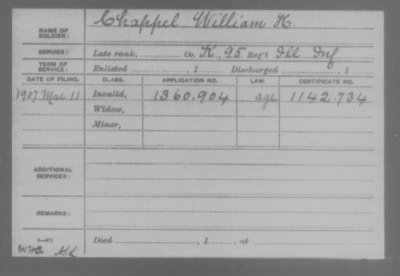 NAME OF SOLDIER: Chappel William H.
SERVICE: Late rank, Co. K, 95 Reg't Ill Inf
TERM OF SERVICE: Enlisted , 1 Discharged , 1
DATE OF FILING. CLASS. APPLICATION NO. LAW. CERTIFICATE NO.
1907 Mar 11 Invalid, 1360.904 age 1142.734
Widow,
Minor,
ADDITIONAL SERVICES:
REMARKS:
Died , 1 , at